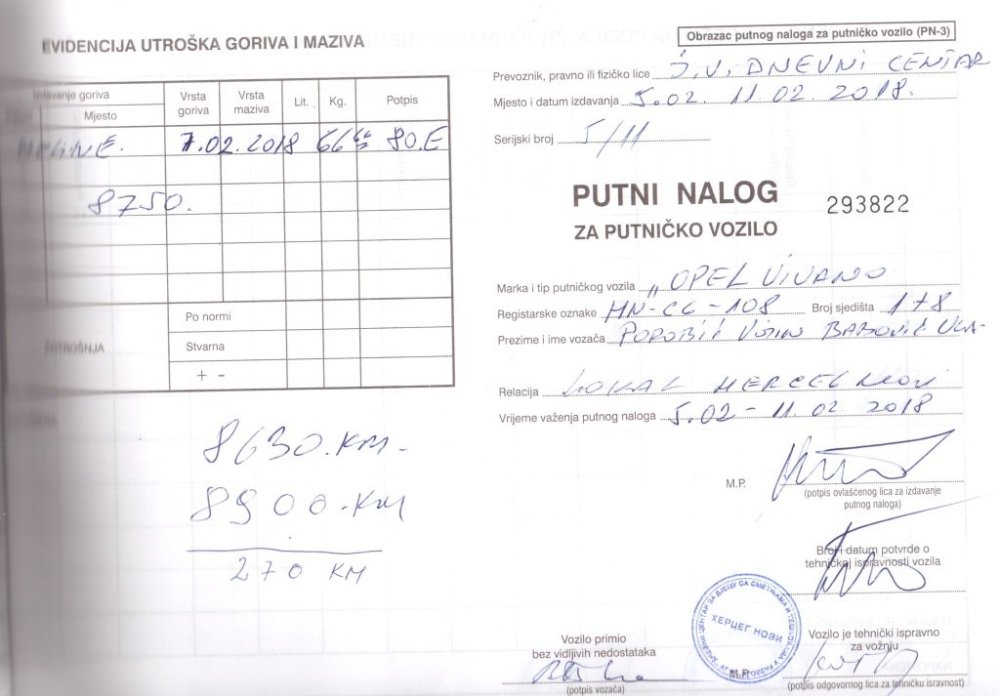 EVIDENCIJA UTROŠKA GORIVA I MAZIVA
goriva
Mjesto
Vrsta goriva
Vrsta maziva
Lit.
Kg.
Potpis
7.02.2018 66 80.E
8750.
Po normi
Stvarna
+ -
8630.KM-
8900.KM
270 KM
Obrazac putnog naloga za putničko vozilo (PN-3)
Prevoznik, pravno ili fizičko lice J.U. DNEVNI CENTAR
Mjesto i datum izdavanja 5.02. 11.02. 2018.
Serijski broj 5/11
PUTNI NALOG
293822
ZA PUTNIČKO VOZILO
Marka i tip putničkog vozila „OPEL VIVARO
Registarske oznake HN-CG-108 Broj sjedišta 1+8
Prezime i ime vozača
Relacija LOKAL HERCEG NOVI
Vrijeme važenja putnog naloga 5.02 - 11.02. 2018
M.P.
(potpis ovlašćenog lica za izdavanje
putnog naloga)
Broj i datum potvrde o
tehničkoj ispravnosti vozila
ХЕРЦЕГ НОВИ
M.P.
Vozilo primio
bez vidljivih nedostataka
(potpis vozača)
Vozilo je tehnički ispravno
za vožnju
(potpis odgovornog lica za tehničku isravnost)